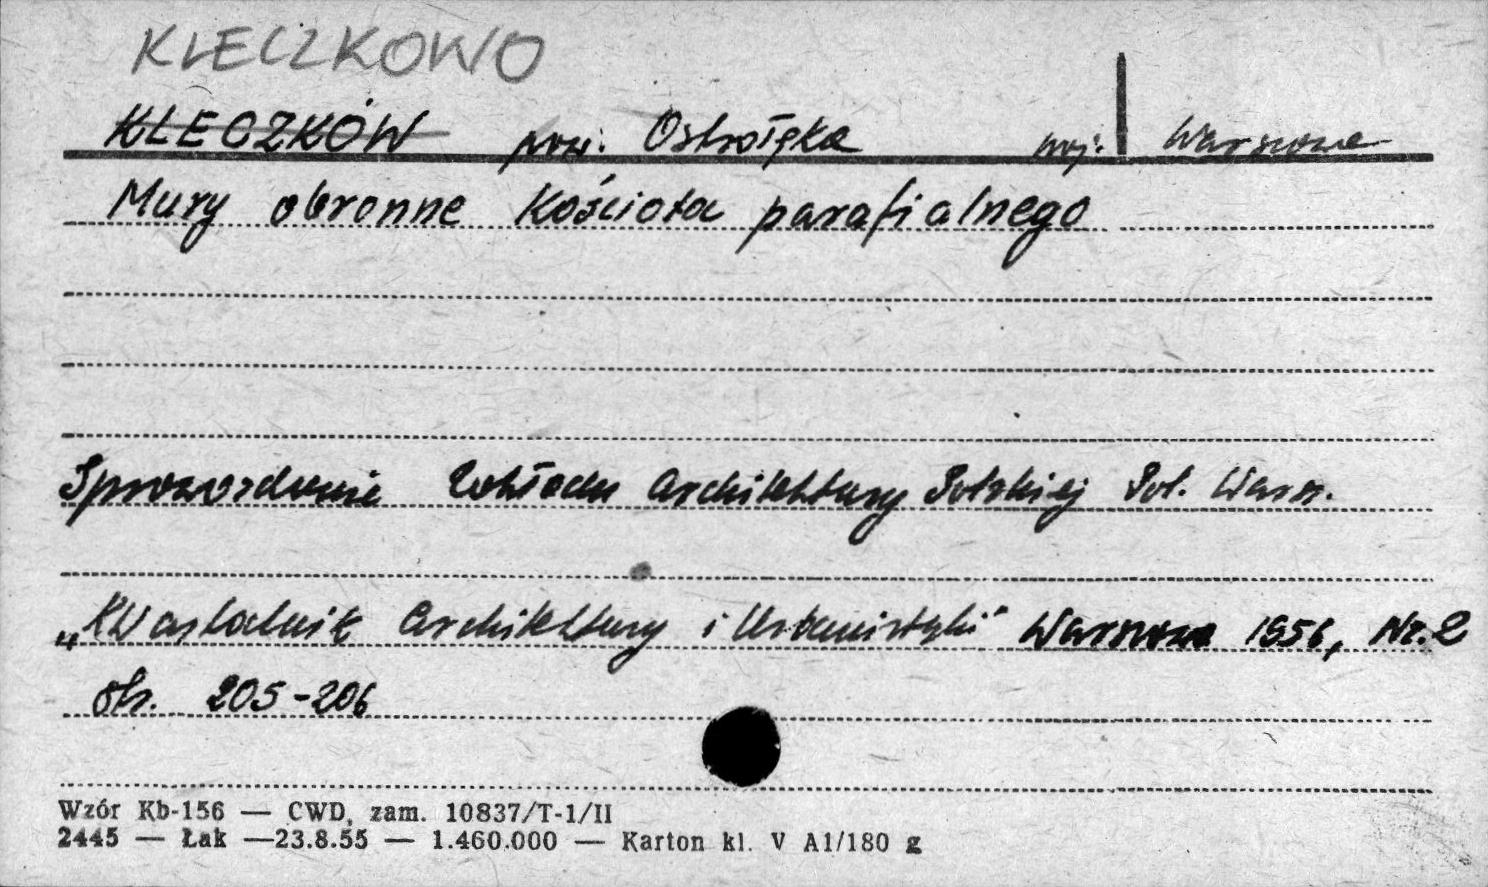 KLECZKOWO
KLECZKÓW pow. Ostrołęka woj. Warszawa
Mury obronne Kościoła parafialnego
Sprawozdanie Zakładu Architektury Polskiej Pol. Warsz.
„Kwartalnik Architektury i Urbanistyki" Warszawa 1956, Nr. 2
str. 205-206
Wzór Kb-156 — CWD, zam. 10837/T-1/II
2445 — Łak —23.8.55 — 1.460.000 — Karton kl. V A1/180 g